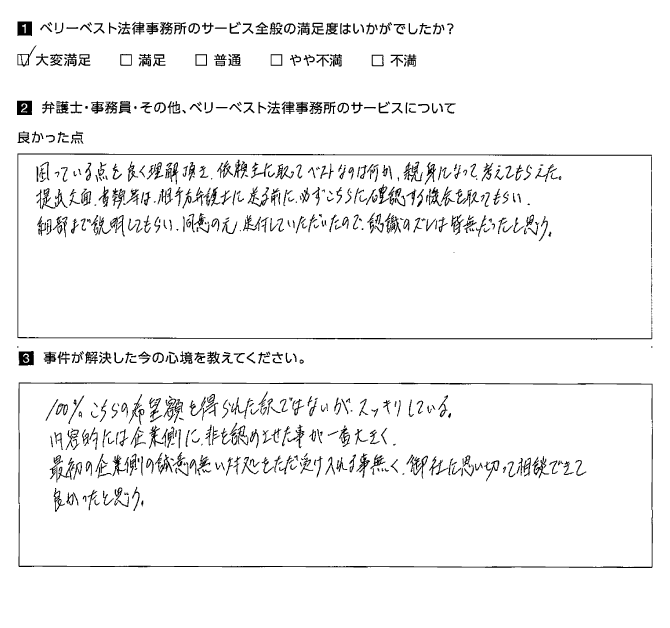 1 ベリーベスト法律事務所のサービス全般の満足度はいかがでしたか?
☑ 大変満足 □ 満足 □ 普通 □ やや不満 □ 不満
2 弁護士・事務員・その他、ベリーベスト法律事務所のサービスについて
良かった点
困っている点を良く理解頂き、依頼主に取ってベストなのは何か、親身になって考えてもらえた。
提出文面、書類等は、相手方弁護士に送る前に、必ずこちらに確認する機会を取ってもらい、
細部まで説明してもらい、同意の元、送付していただいたので、認識のズレは皆無だったと思う。
3 事件が解決した今の心境を教えてください。
100%こちらの希望額を得られた訳ではないが、スッキリしている。
内容的には企業側に、非を認めさせた事が一番大きく、
最初の企業側の誠意の無い対処をただ受け入れる事無く、御社に思い切って相談できて
良かったと思う。